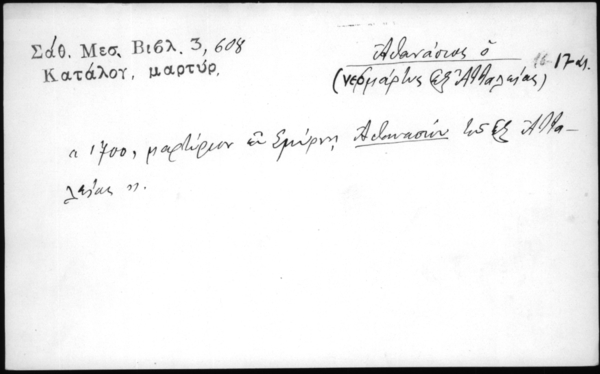 Σάθ. Μεσ. Βιβλ. 3, 608
Κατάλογ. μαρτύρ.
Ἀθανάσιος ὁ
(νεομάρτυς ἐξ Ἀτταλείας) 16-17 αι.
« 1700, μαρτύριον ἐν Σμύρνῃ Ἀθανασίου τοῦ ἐξ Ἀττα-
λείας ».